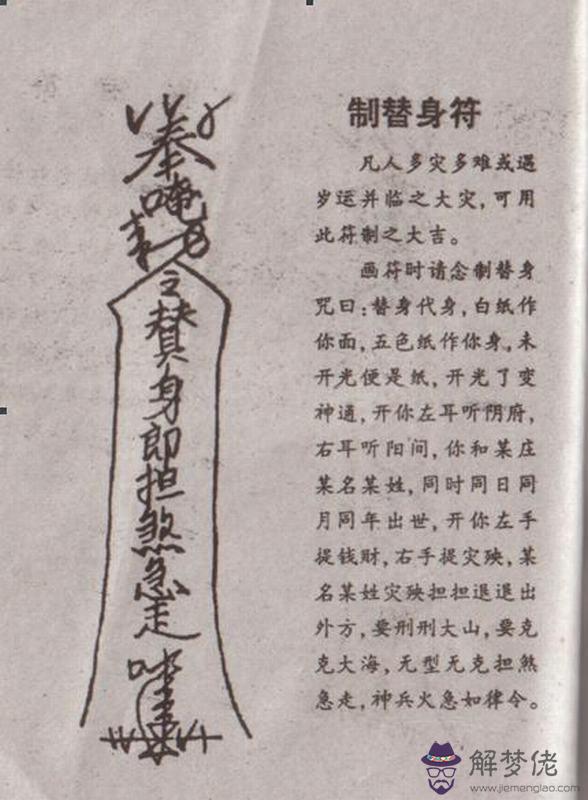 奉
唵
令替身即担煞急走
制替身符
凡人多灾多难或遇
岁运并临之大灾，可用
此符制之大吉。
画符时请念制替身
咒曰：替身代身，白纸作
你面，五色纸作你身，未
开光便是纸，开光了变
神通，开你左耳听阴府，
右耳听阳间，你和某庄
某名某姓，同时同日同
月同年出世，开你左手
提钱财，右手提灾殃，某
名某姓灾殃担担退退出
外方，要刑刑大山，要克
克大海，无型无克担煞
急走，神兵火急如律令。
解梦佬
www.jiemenglao.com